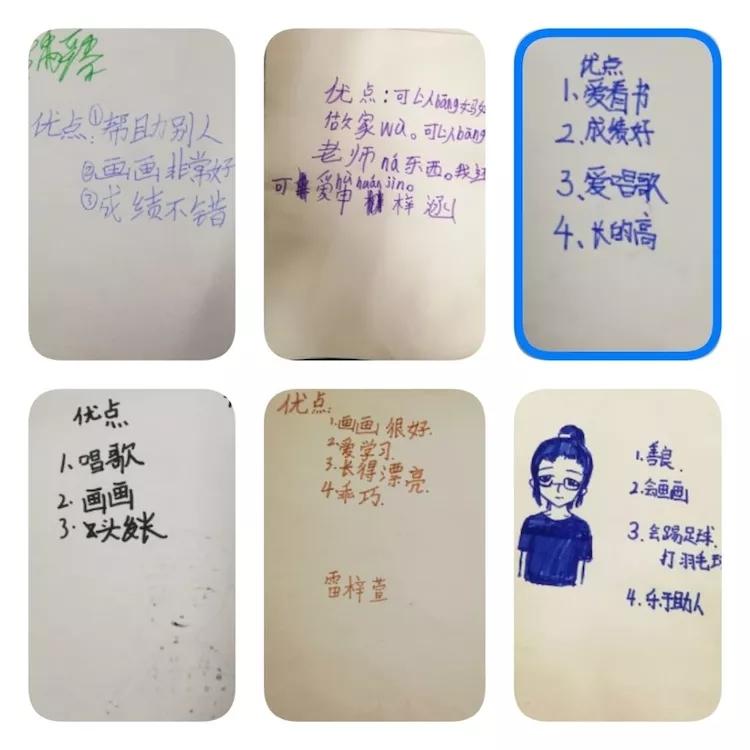 优点:①帮助别人
②画画非常好
③成绩不错
优点:可以人bāng妈
做家wù。可以人bāng
老师ná东西。我
可爱
梓涵
优点
1、爱看书
2、成绩好
3、爱唱歌
4、长的高
优点
1、唱歌
2、画画
3、头发长
优点:
1.画画很好.
2.爱学习.
3.长得漂亮.
4.乖巧.
雷梓萱
1.善良.
2.会画画
3.会踢足球.
打羽毛
4.乐于助人